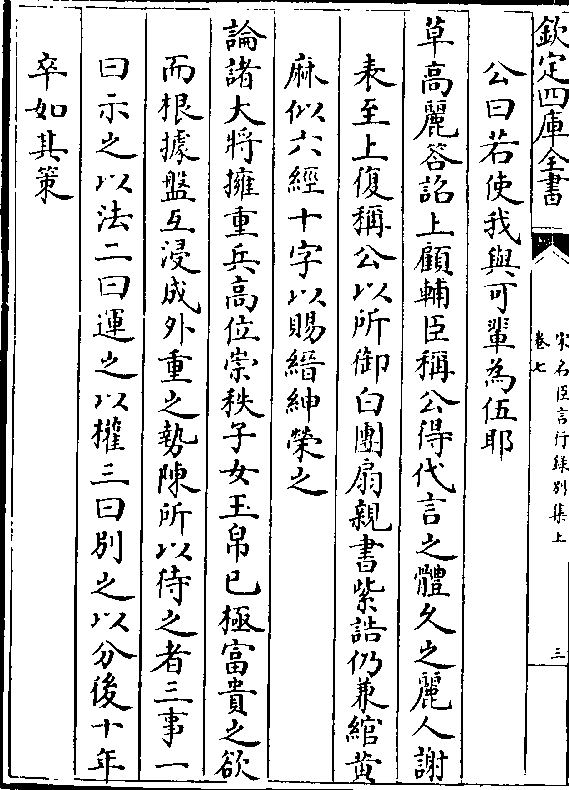 欽定四庫全書
宋名臣言行録别集上
卷七
三
公曰若使我與可輩為伍耶
草高麗答詔上顧輔臣稱公得代言之體久之麗人謝
表至上復稱公以所御白團扇親書紫誥仍兼綰黄
麻似六經十字以賜縉紳榮之
論諸大將擁重兵高位崇秩子女玉帛已極富貴之欲
而根據盤互浸成外重之勢陳所以待之者三事一
曰示之以法二曰運之以權三曰别之以分後十年
卒如其策